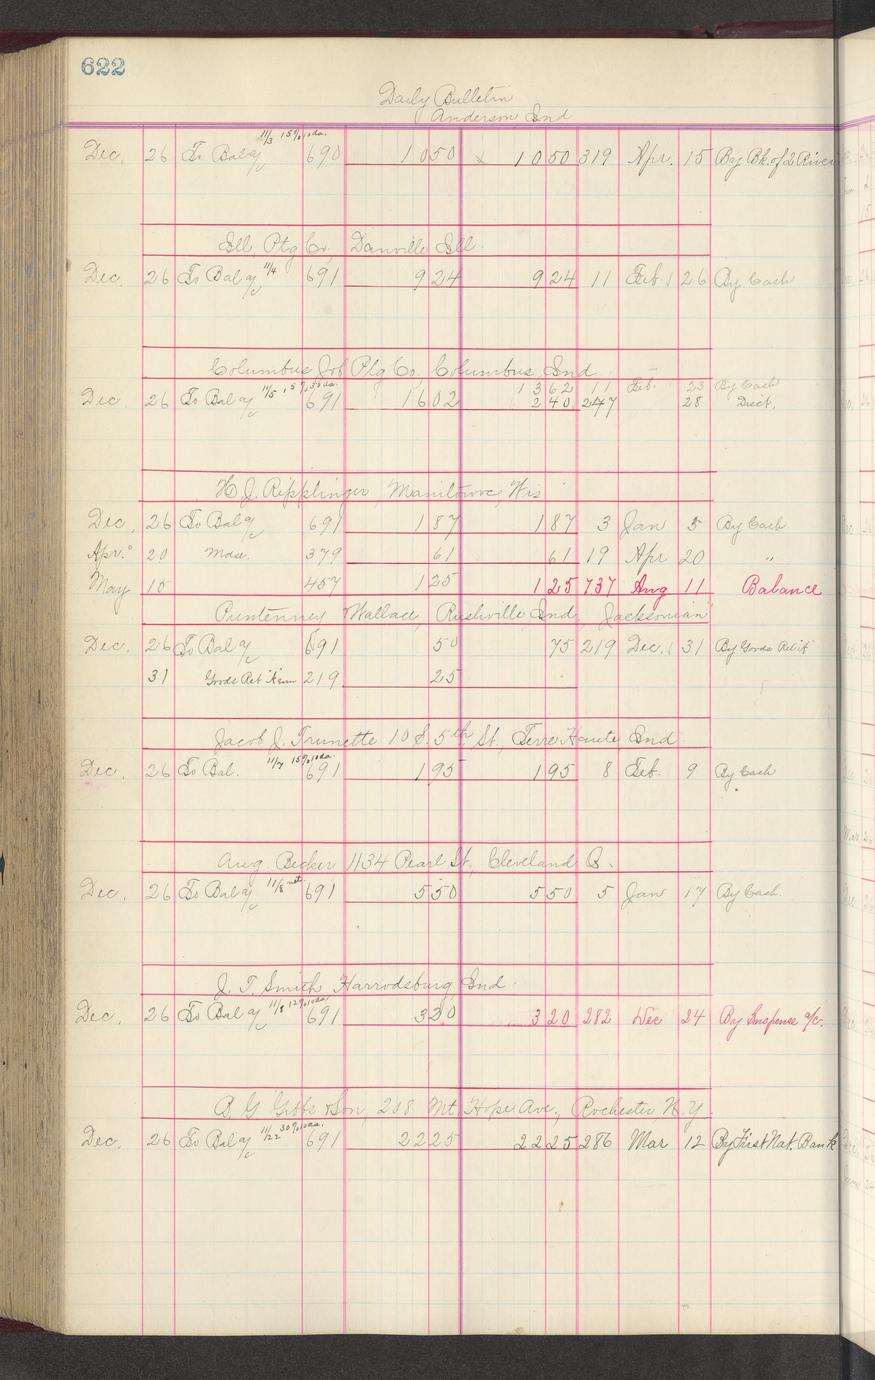 622
Daily Bulletin
Anderson Ind
11/3 15% 10 da.
Dec. 26 To Bal a/c 690 1050 1050 319 Apr. 15 By Bk. of 2 River
Ill. Ptg Co, Danville Ill.
Dec. 26 To Bal a/c 11/4 691 924 924 11 Feb 26 By Cash
Columbus Job Ptg Co. Columbus, Ind
11/5 15% 30 da. 1362 11 Feb. 23 By Cash
Dec 26 To Bal a/c 691 1602 240 247 28 Disct.
H J. Ripplinger, Manitowoc, Wis
Dec. 26 To Bal a/c 691 187 187 3 Jan 5 By Cash
Apr. 20 Mdse. 379 61 61 19 Apr 20 "
May 15 457 125 125 737 Aug 11 Balance
Puntenney Wallace, Rushville Ind, Jacksonian"
Dec. 26 To Bal a/c 691 50 75 219 Dec. 31 By Goods Ret'd
31 Goods Ret 219 25
Jacob J. Trunette 10 S. 5th St., Terre Haute, Ind
11/7 15% 10 da.
Dec. 26 To Bal. 691 195 195 8 Feb. 9 By Cash
Aug. Becker 1134 Pearl St, Cleveland O.
Dec. 26 To Bal a/c 11/8 net. 691 550 550 5 Jan 17 By Cash.
J. T. Smith Harrodsburg, Ind.
Dec. 26 To Bal a/c 11/8 12% 10 da 691 320 320 282 Dec 24 By Suspense a/c.
B G Gibbs & Son, 208 Mt. Hope Ave., Rochester N.Y.
Dec. 26 To Bal a/c 11/22 30% 10 da. 691 2225 2225 286 Mar 12 By First Nat. Bank